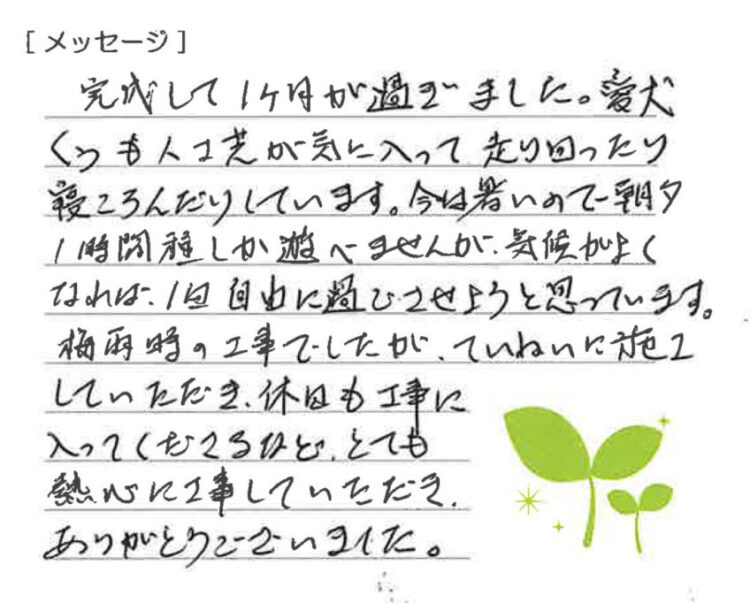 [ メッセージ ]
完成して1ヶ月が過ぎました。愛犬
くうも人工芝が気に入って走り回ったり
寝ころんだりしています。今は暑いので朝夕
1時間程しか遊べませんが、気候がよく
なれば、1日自由に過ごさせようと思っています。
梅雨時の工事でしたが、ていねいに施工
していただき、休日も工事に
入ってくださるなど、とても
熱心に工事していただき、
ありがとうございました。